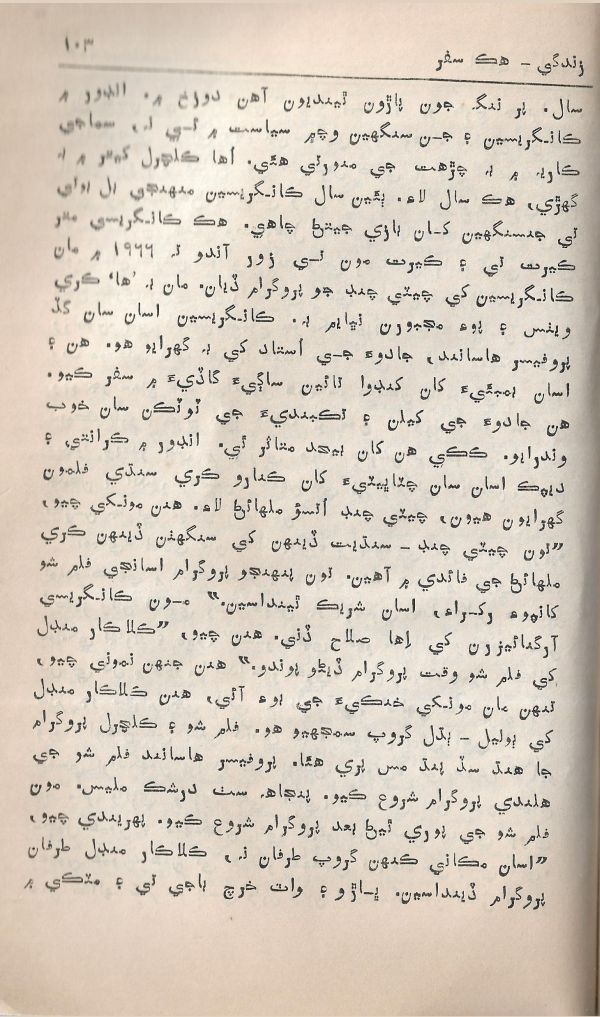 زندگي - هڪ سفر
١٠٣
سال. پر ننگ جون پاڙون ٿينديون آهن دوزخ ۾. اندور ۾
ڪانگريسين ۽ جن سنگهين وچ ۾ سياست ۾ ئي نہ، سماجي
ڪاريہ ۾ بہ چڙهت جي مندرتي هئي. اها ڪلچرل کيتر ۾ بہ
گهڙي، هڪ سال لاءِ. ٻئين سال ڪانگريسين منهنجي
ئي جنسنگهين کان بازي جيتڻ چاهي. هڪ ڪانگريسي متر
ڪيرت ئي ۽ ڪيرت مون تي زور آندو تہ ١٩٦٦ ۾ مان
ڪانگريسين کي چيٽي چنڊ جو پروگرام ڏيان. مان بہ ’ها‘ ڪري
ويٺس ۽ پوءِ مجبورن نڀايم بہ. ڪانگريسين اسان سان گڏ
پروفيسر هاسانند، جادوءَ جي اُستاد کي بہ گهرايو هو. هن ۽
اسان بمبئيءَ کان کنڊوا تائين ساڳيءَ گاڏيءَ ۾ سفر ڪيو.
هن جادوءَ جي کيلن ۽ تڪبنديءَ جي ٽوٽڪن سان خوب
وندرايو. ڪڪي هن کان بيحد متاثر ٿي. اندور ۾ ڪرانتي، ۽
ديپڪ اسان سان چٽاڀيٽيءَ کان ڪنارو ڪري سنڌي فلمون
گهرايون هيون، چيٽي چنڊ اُتسؤ ملهائڻ لاءِ. هنن مونکي چيو،
”تون چيٽي چنڊ - سنڌيت ڏينهن کي سنگهٺن ڏينهن ڪري
ملهائڻ جي فائدي ۾ آهين. تون پنهنجو پروگرام اسانجي فلم شو
کانپوءِ رکراءِ، اسان شريڪ ٿينداسين.“ مون ڪانگريسي
آرگنائيزرن کي اِها صلاح ڏني. هنن چيو، ”ڪلاڪار منڊل
کي فلم شو وقت پروگرام ڏيڻو پوندو.“ هنن جنهن نموني چيو،
تنهن مان مونکي خنڪيءَ جي بوءِ آئي، هنن ڪلاڪار منڊل
کي ٻوليل - ٻڌل گروپ سمجهيو هو. فلم شو ۽ ڪلچرل پروگرام
جا هنڌ سڏ پنڌ مس پري هئا. پروفيسر هاسانند فلم شو جي
هلندي پروگرام شروع ڪيو. پنجاهہ سٺ درشڪ مليس. مون
فلم شو جي پوري ٿيڻ بعد پروگرام شروع ڪيو. پهريندي چيو،
”اسان مڪاني ڪنهن گروپ طرفان نہ، ڪلاڪار منڊل طرفان
پروگرام ڏينداسين. ڀاڙو ۽ واٽ خرچ باجي ئي ۽ مٽڪي ۾